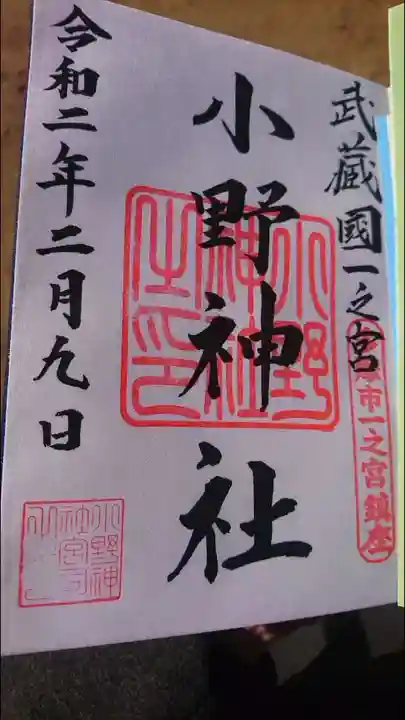 武蔵國一之宮
市一之宮鎮座
小野神社
小野神社之印
令和二年二月九日
小野神社宮司之印